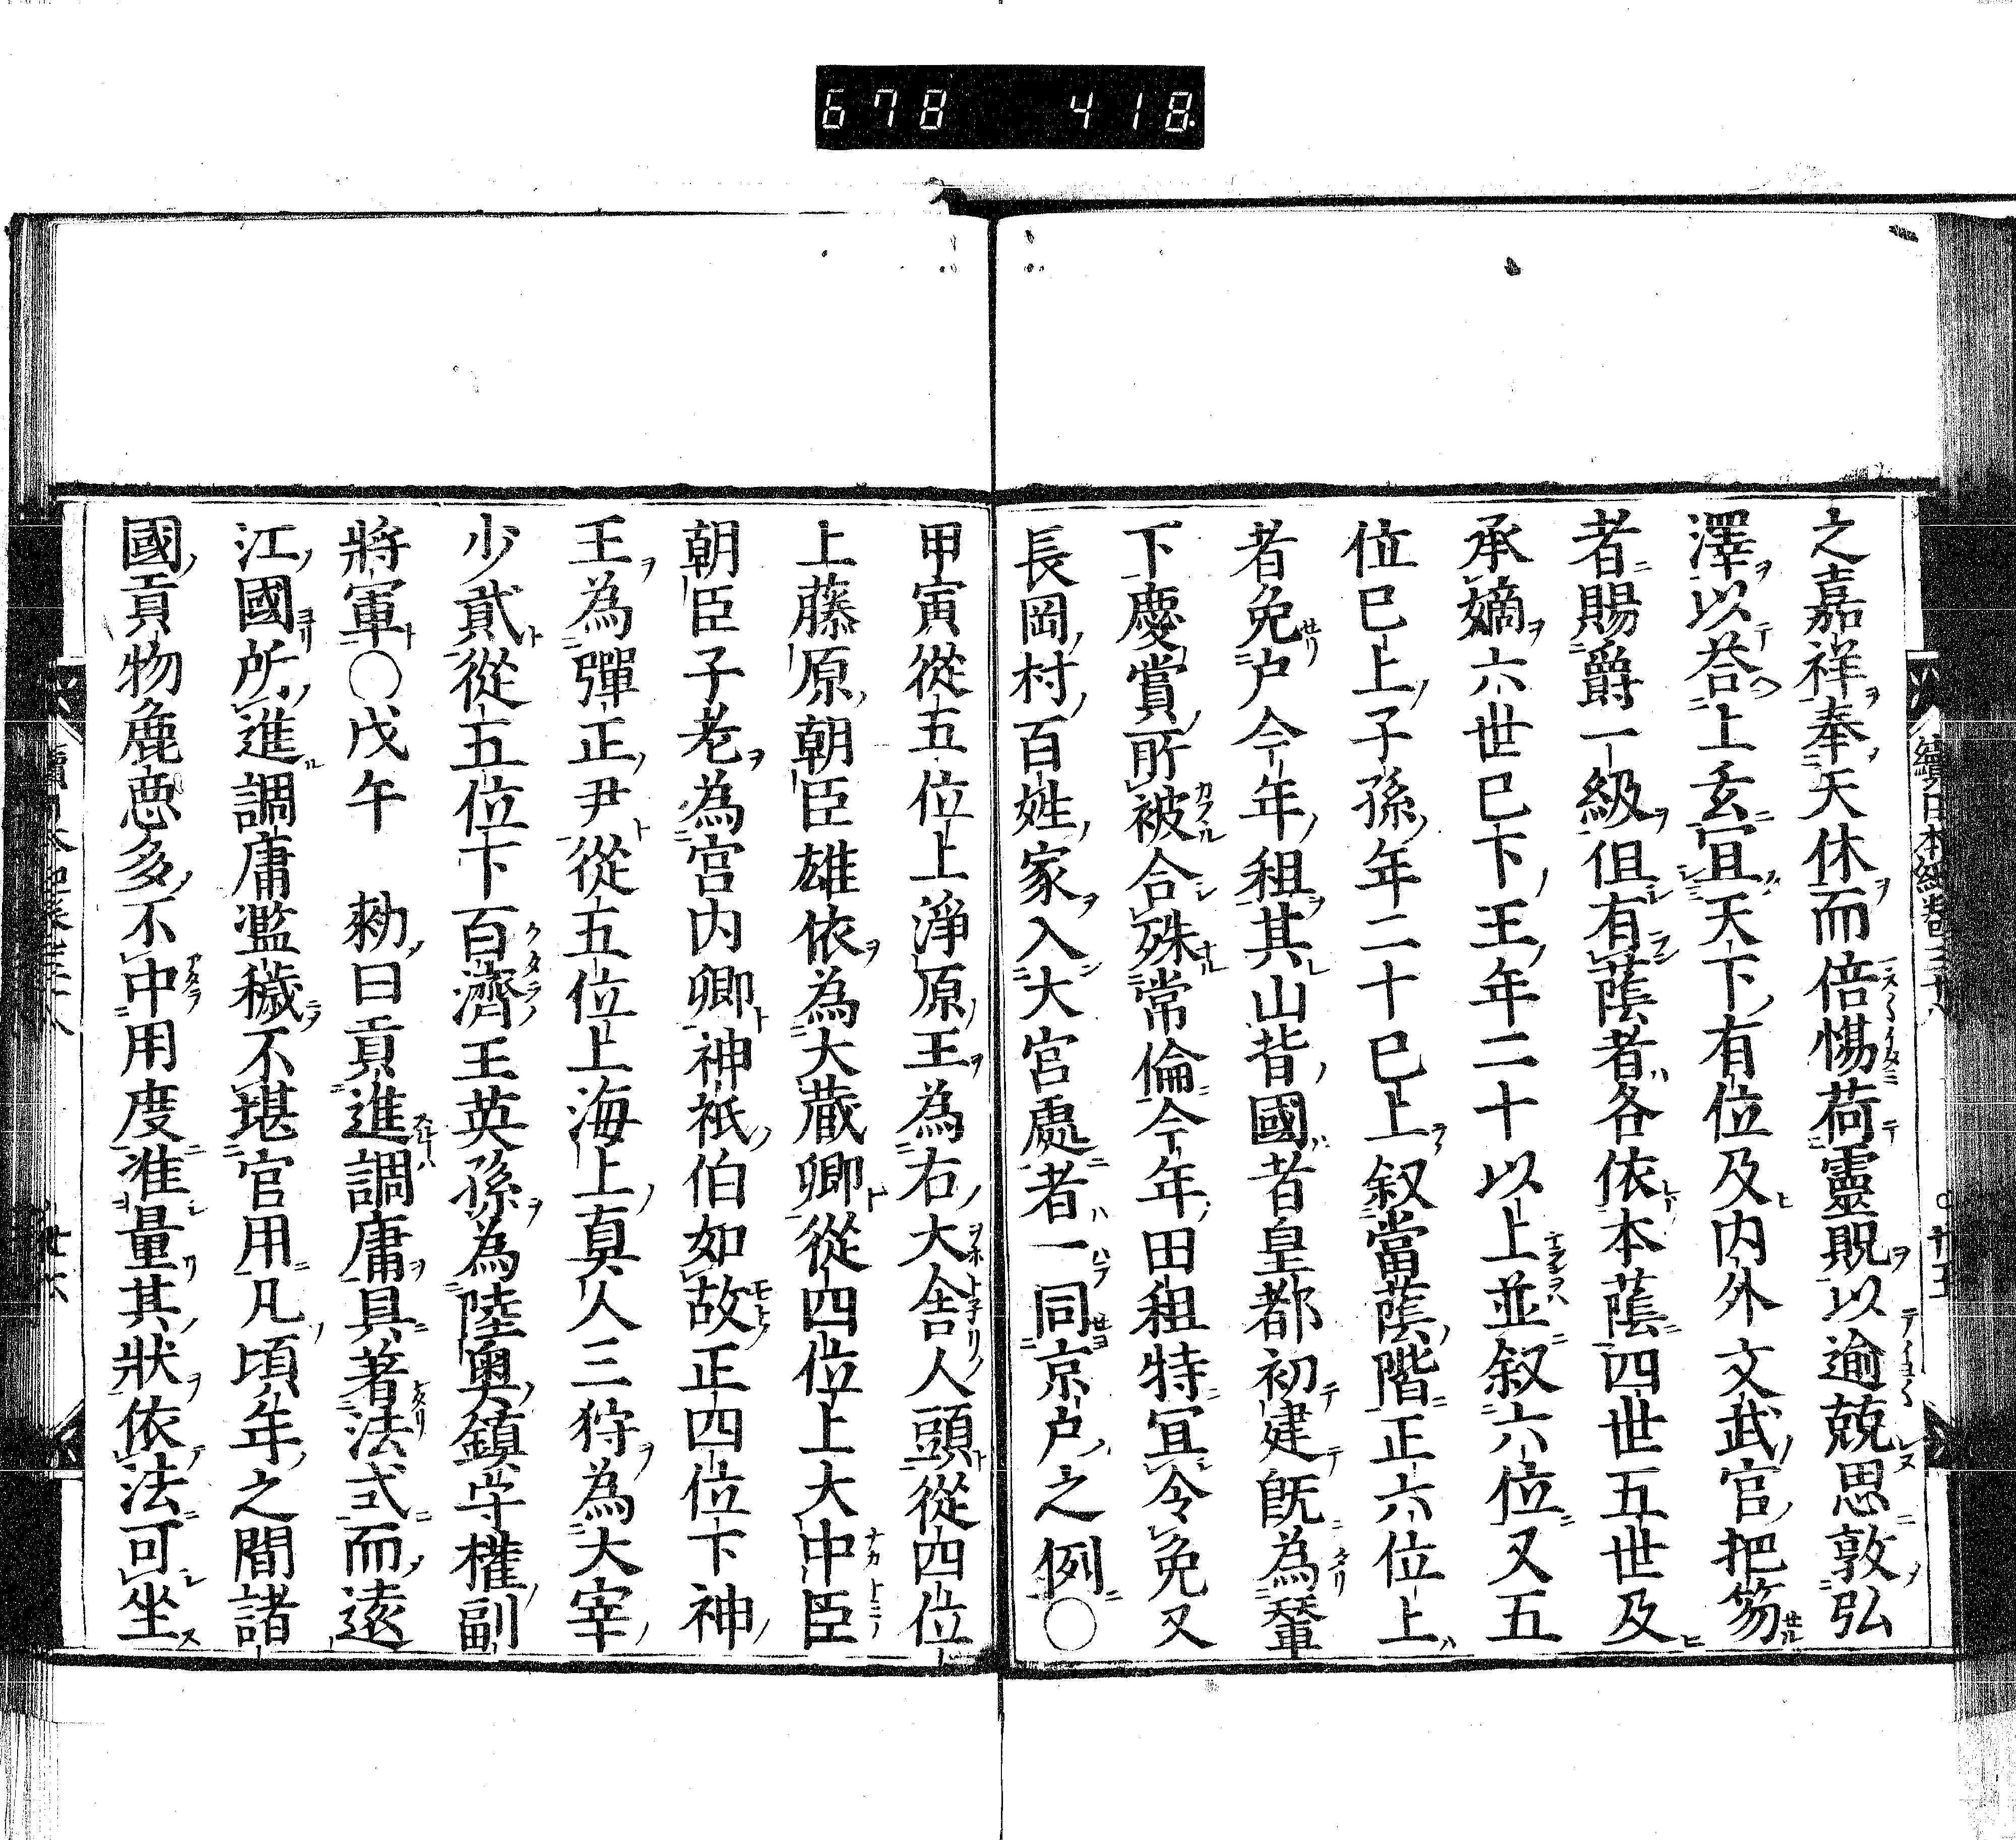 678 418
續日本紀卷三十八
之嘉祥奉天休而倍惕荷靈貺以逾兢思敦弘
澤以荅上玄宜天下有位及内外文武官把笏
者賜爵一級但有蔭者各依本蔭四世五世及
承嫡六世已下王年二十以上並叙六位又五
位已上子孫年二十已上叙當蔭階正六位上
者免户今年租其山背國者皇都初建既為輦
下慶賞所被合殊常倫今年田租特宜令免又
長岡村百姓家入大宮處者一同京户之例〇
甲寅從五位上淨原王為右大舍人頭從四位
上藤原朝臣雄依為大藏卿從四位上大中臣
朝臣子老為宮内卿神祇伯如故正四位下神
王為彈正尹從五位上海上真人三狩為大宰
少貳從五位下百濟王英孫為陸奥鎮守權副
將軍〇戊午 勑曰貢進調庸具著法式而遠
江國所進調庸濫穢不堪官用凡頃年之間諸
國貢物麁惡多不中用度准量其狀依法可坐